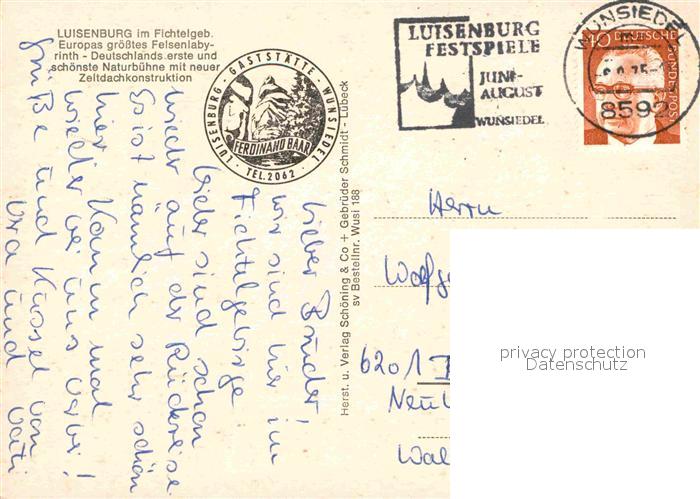 LUISENBURG im Fichtelgeb.
Europas größtes Felsenlaby-
rinth - Deutschlands erste und
schönste Naturbühne mit neuer
Zeltdachkonstruktion
LUISENBURG · GASTSTÄTTE · WUNSIEDEL
FERDINAND BAAR
· TEL. 2062 ·
LUISENBURG
FESTSPIELE
JUNI-
AUGUST
WUNSIEDEL
WUNSIEDEL
8592
40 DEUTSCHE
BUNDESPOST
Herst. u. Verlag Schöning & Co + Gebrüder Schmidt - Lübeck
sv Bestellnr. Wusi 188
Lieber Bruder!
wir sind hier im
Fichtelgebirge
leider sind schon
wieder auf der Rückreise.
Es ist nämlich sehr schön
hier. Komm mal
wieder bei uns vorbei!
Grüße und Küssel von
und Vati
Herrn
6201
privacy protection
Datenschutz